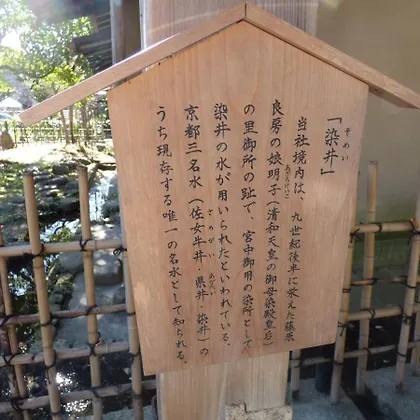 「染井」
そめい
当社境内は、九世紀後半に栄えた藤原
良房の娘明子(清和天皇の御母染殿皇后)
あきらけいこ
の里御所の趾で、宮中御用の染所として
染井の水が用いられたといわれている。
京都三名水(佐女牛井、県井・染井)の
さめがい
あがたい
うち現存する唯一の名水として知られる。